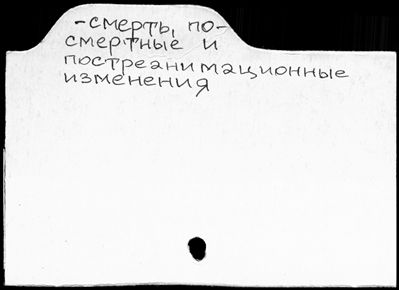 -смерть, по-
смертные и
постреанимационные
изменения